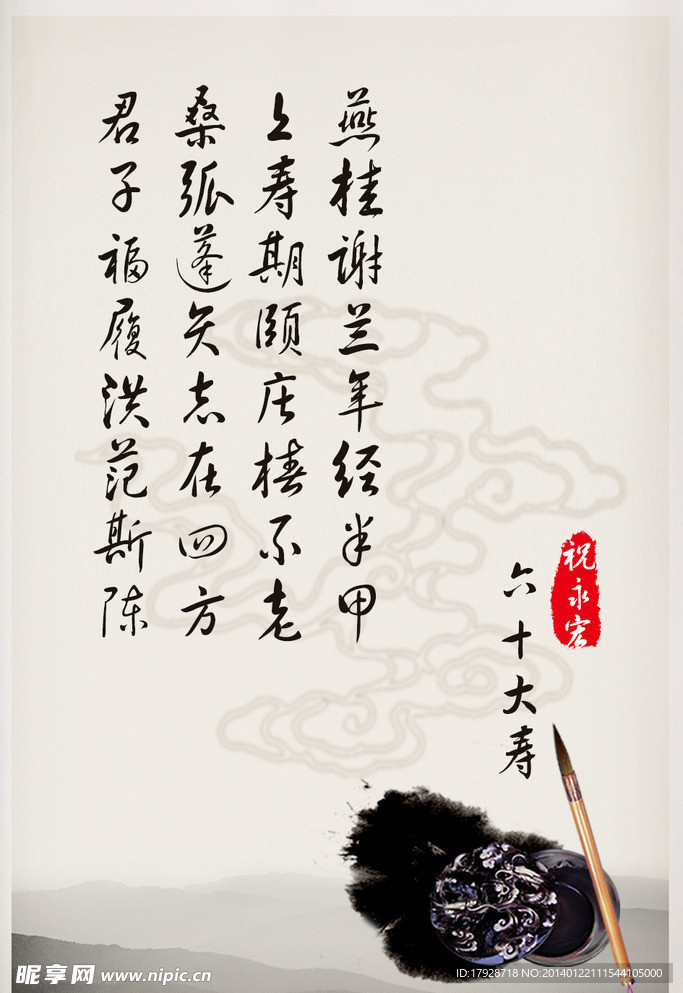 燕桂谢兰年经半甲
上寿期颐庄椿不老
桑弧蓬矢志在四方
君子福履洪范斯陈
祝永宏
六十大寿
昵享网 www.nipic.cn
ID:17928718 NO:20140122111544105000